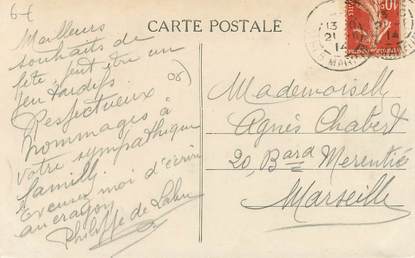 CARTE POSTALE
Meilleurs
souhaits de
fête peut être un
peu tardifs.
Respectueux
hommages à
votre sympathique
famille.
Excusez moi d'écrire
au crayon
Philippe de
Mademoiselle
Agnès Chabert
20, Bard Merentié
Marseille
13
21
14
10